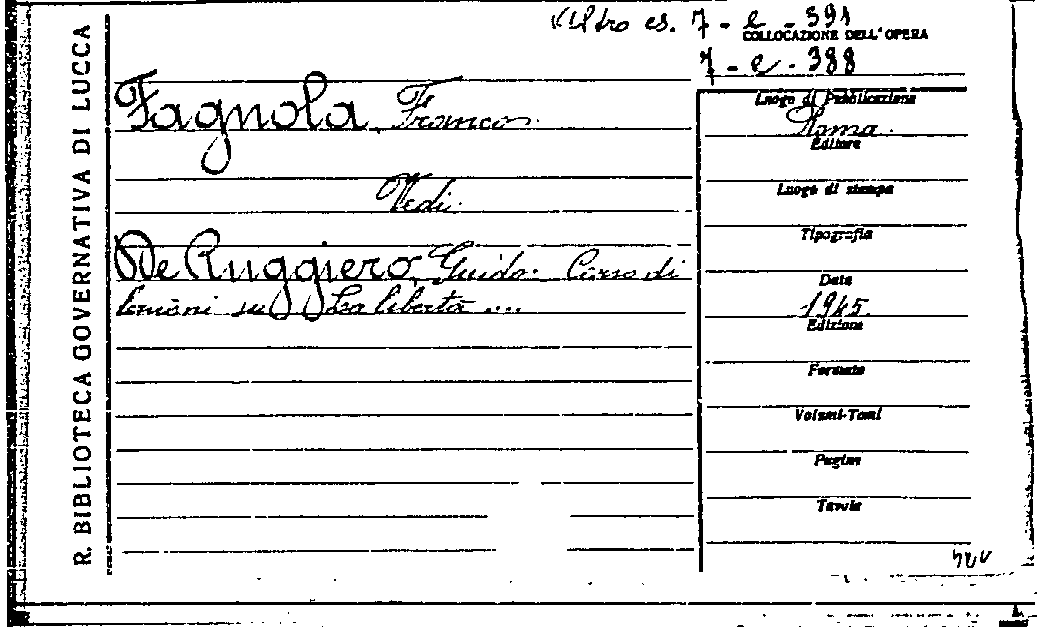 R. BIBLIOTECA GOVERNATIVA DI LUCCA
Altro es. 7 - e - 391
COLLOCAZIONE DELL'OPERA
7 - e - 388
Fagnola, Franco.
Vedi:
De Ruggiero, Guido: Corso di
lezioni su La libertà ....
Luogo di Pubblicazione
Roma.
Editore
Luogo di stampa
Tipografia
Data
1945.
Edizione
Formato
Volumi-Tomi
Pagine
Tavole